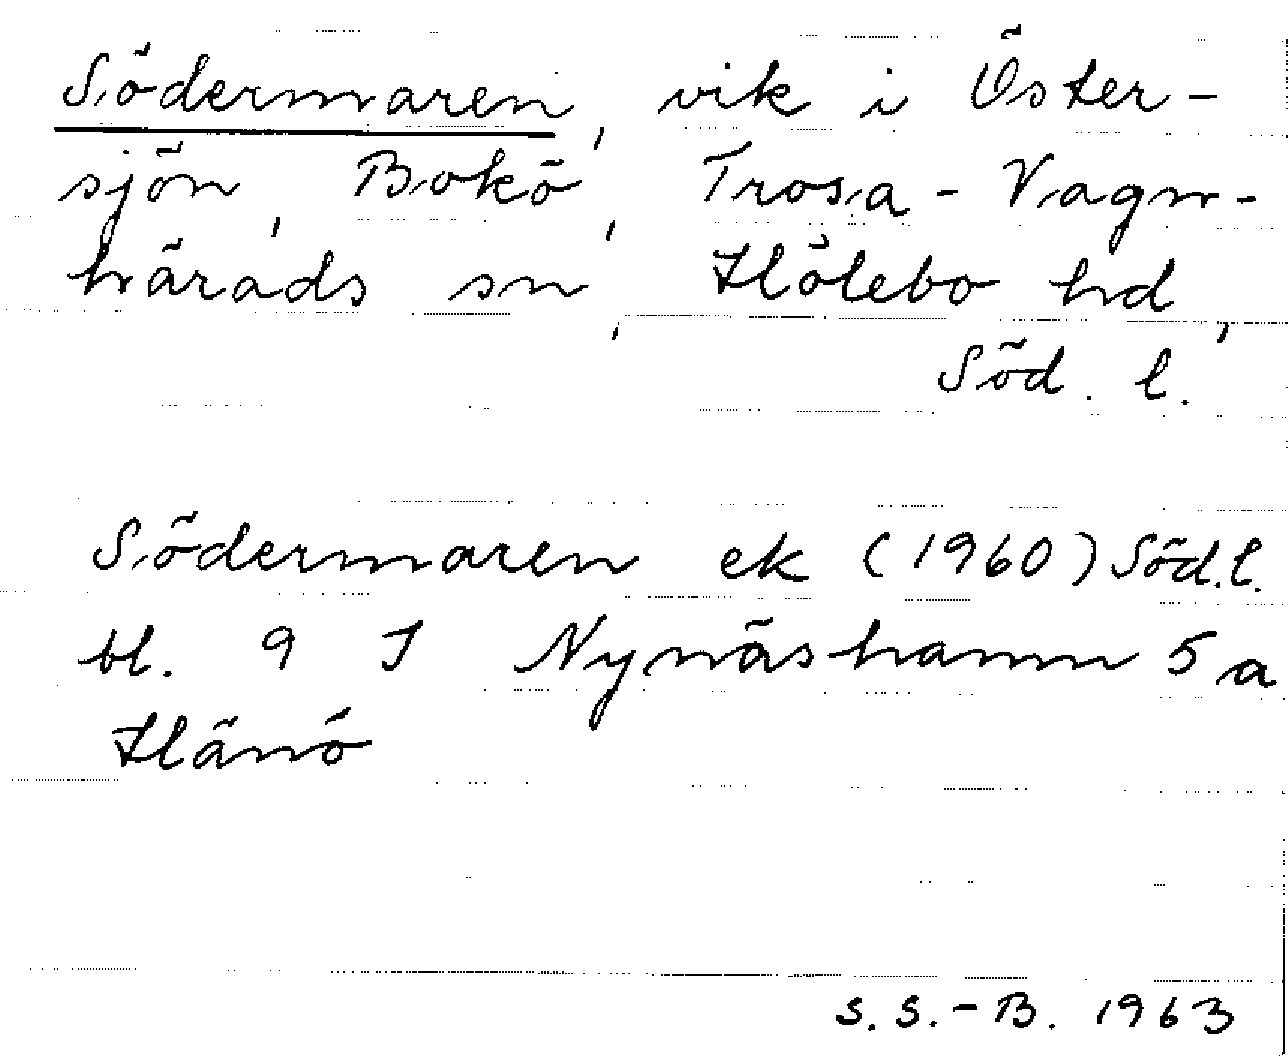 Södermaren, vik i Öster-
sjön, Bokö, Trosa-Vagn-
härads sn, Hölebo hd,
Söd. l.
Södermaren ek (1960) Söd.l.
bl. 9 I Nynäshamn 5a
Hänö
S.S.-B. 1963